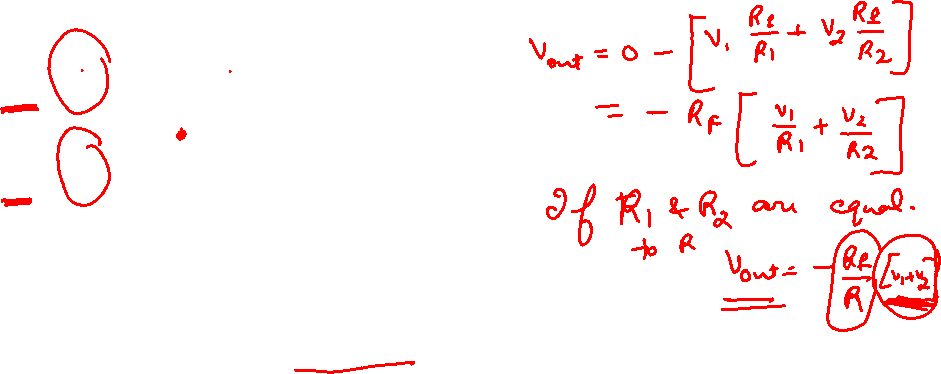 Vout = 0 - [V1 Rf/R1 + V2 Rf/R2]
= - RF [V1/R1 + V2/R2]
If R1 & R2 are equal.
to R
Vout = - Rf/R [V1+V2]